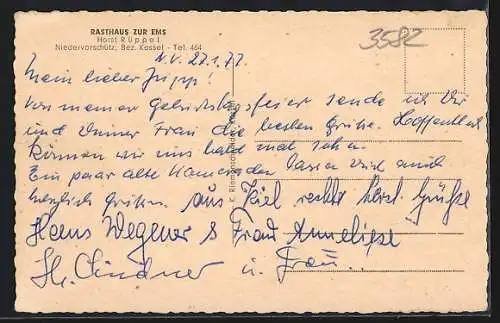 RASTHAUS ZUR EMS
Horst Rüppel
Niedervorschütz, Bez. Kassel - Tel. 464
3582
N.V. 27.1.77.
Mein lieber
Von meiner Geburtstagsfeier sende ich Dir
und Deiner Frau die besten Grüße. Hoffentlich
können wir uns bald mal sehen.
Ein paar alte Kameraden lassen Dich auch
herzlich grüßen. aus Kiel recht herzl. Grüße
Hans Wegener & Frau Anneliese
Lindner u. Frau.